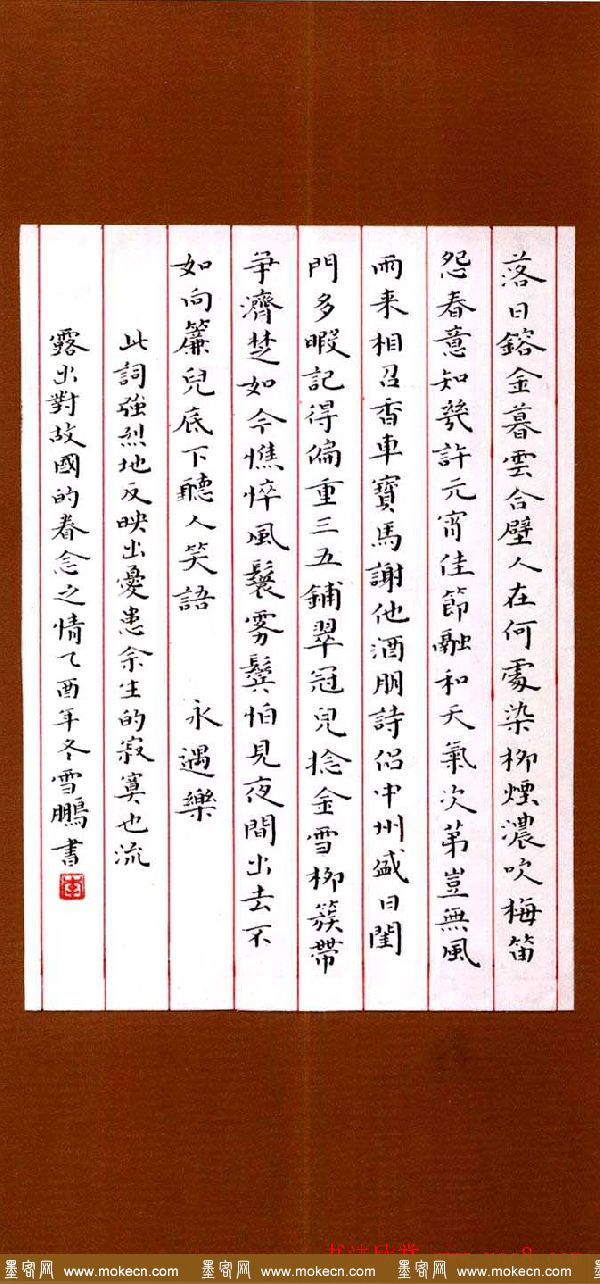 落日鎔金暮雲合璧人在何處染柳煙濃吹梅笛
怨春意知幾許元宵佳節融和天氣次第豈無風
雨來相召香車寶馬謝他酒朋詩侶中州盛日閨
門多暇記得偏重三五鋪翠冠兒捻金雪柳簇帶
爭濟楚如今憔悴風鬟雾鬢怕見夜間出去不
如向簾兒底下聽人笑語 永遇樂
此詞強烈地反映出憂患余生的寂寞也流
露出對故國的眷念之情乙酉年冬雪鵬書
墨客网 www.mokecn.com 墨客网 www.mokecn.com 墨客网 www.mokecn.com